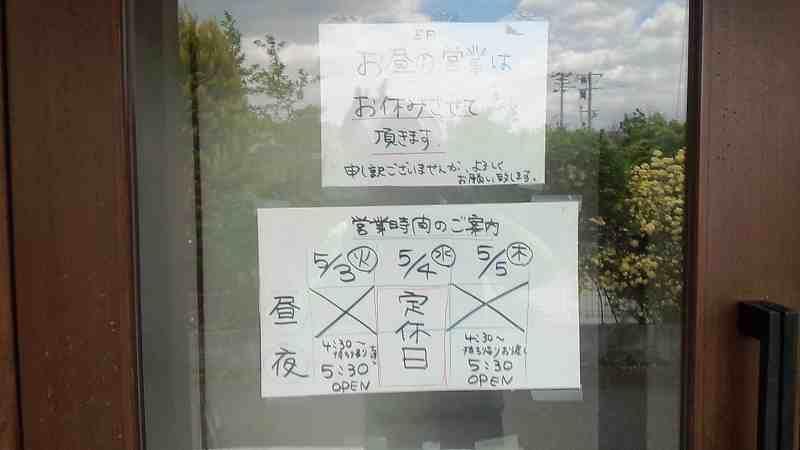 5月
お昼の営業は
お休みさせて
頂きます。
申し訳ございませんが、よろしく
お願い致します。
営業時間のご案内
5/3 火 5/4 水 5/5 木
昼 定休日
夜
4:30〜 4:30〜
持ち帰りお渡し
5:30 5:30
OPEN OPEN